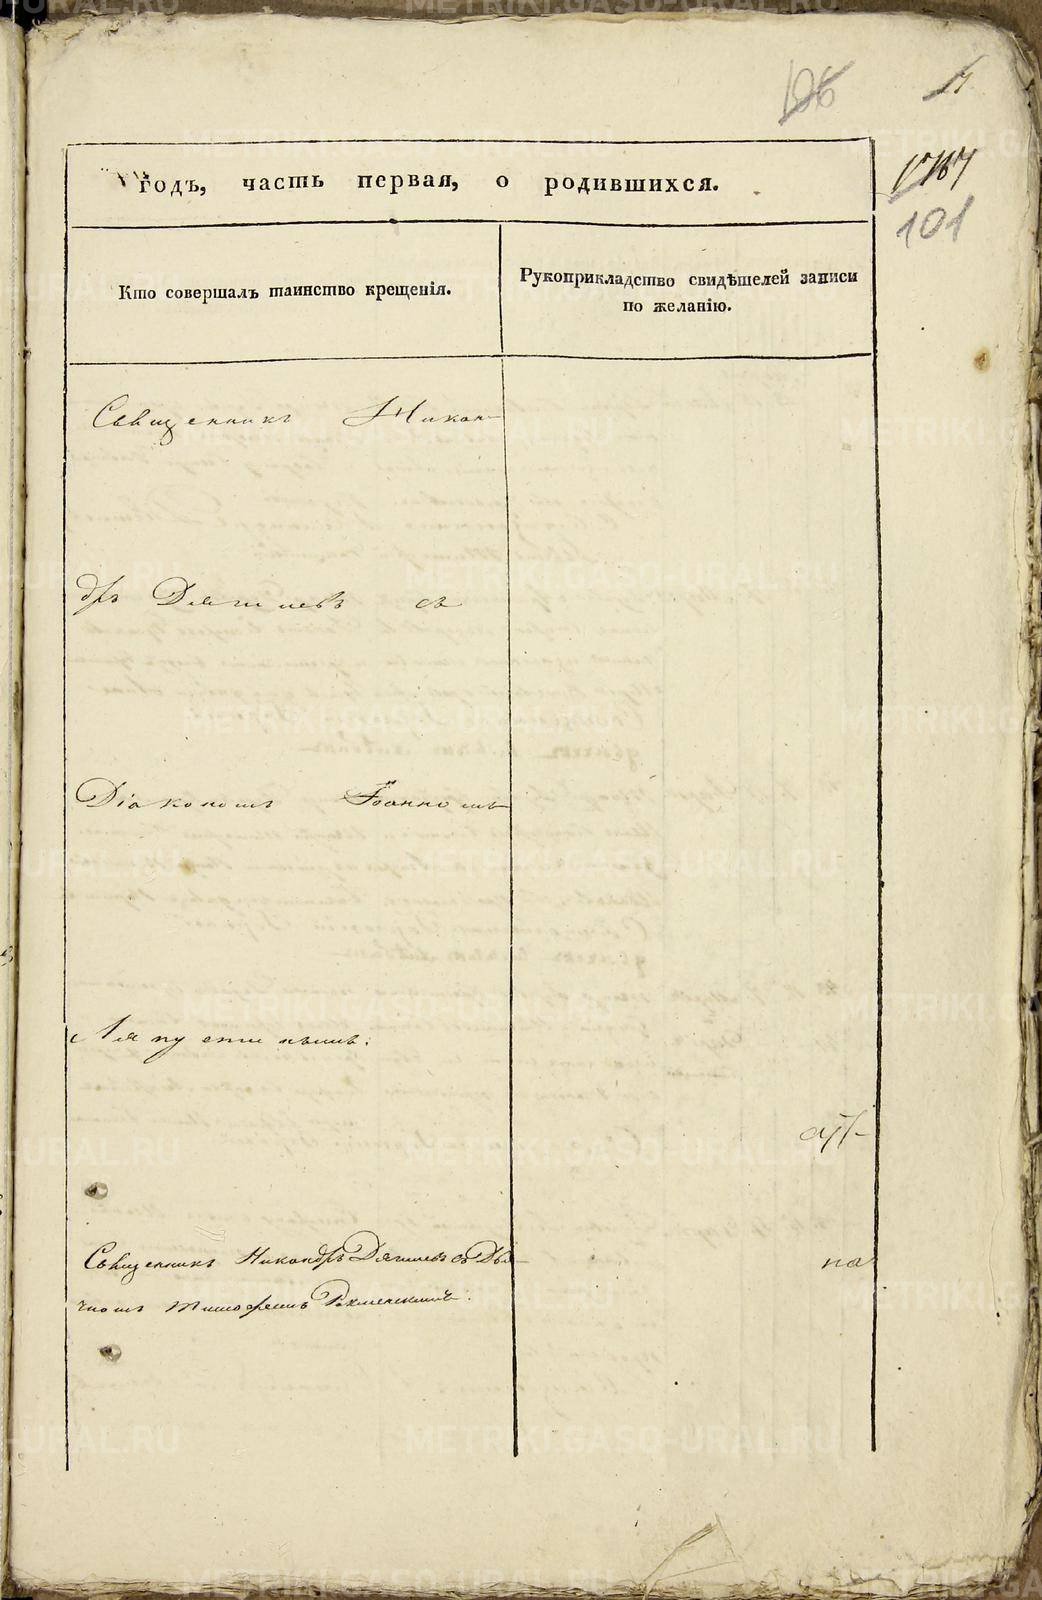 106
101
годъ, часть первая, о родившихся.
Кто совершалъ таинство крещенія.
Рукоприкладство свидѣтелей записи
по желанію.
Священникъ Никан-
дръ Дягилевъ съ
Діакономъ Іоанномъ
Ляпустинымъ.
Священникъ Никандръ Дягилевъ съ Дья-
чкомъ Тимофеемъ
на
METRIKI.GASO-URAL.RU